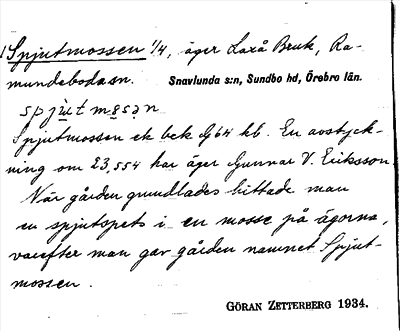 Spjutmossen 1/4, äger Laxå Bruk, Ra-
mundebodasn. Snavlunda s:n, Sundbo hd, Örebro län.
spjùt mɷsən
Spjutmossen ek bek G64 kb. En avstyck-
ning om 23,554 har äger Gunnar V. Eriksson.
När gården grundlades hittade man
en spjutspets i en mosse på ägorna,
varefter man gav gården namnet Spjut-
mossen.
GÖRAN ZETTERBERG 1934.